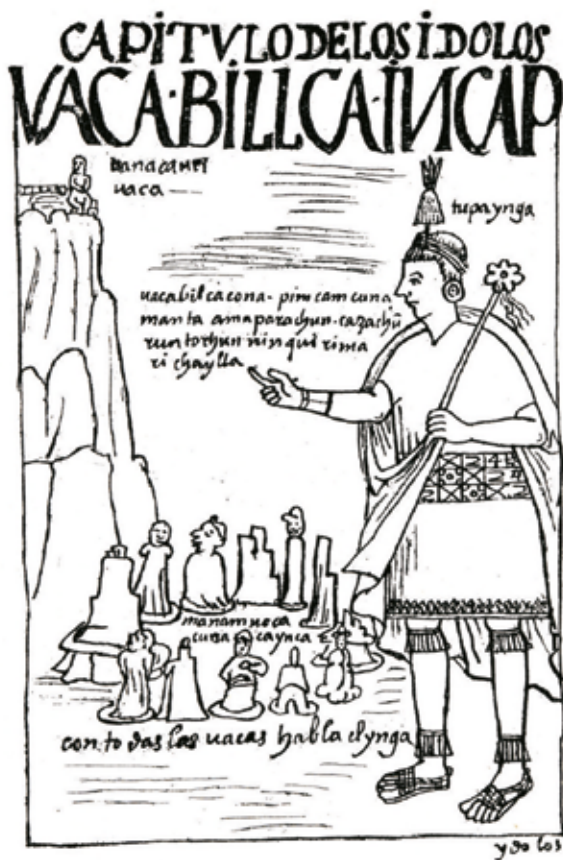 CAPITVLO DE LOS IDOLOS
VACA·BILLCA·INCAP
uanacauri
uaca
tupa ynga
uacabilcacona - pim camcuna
manta ama parachun - cazachū
runtochun ninqui rima
ri chaylla
manam noca
cuna caynca
con todas las uacas habla el ynga
ydolos